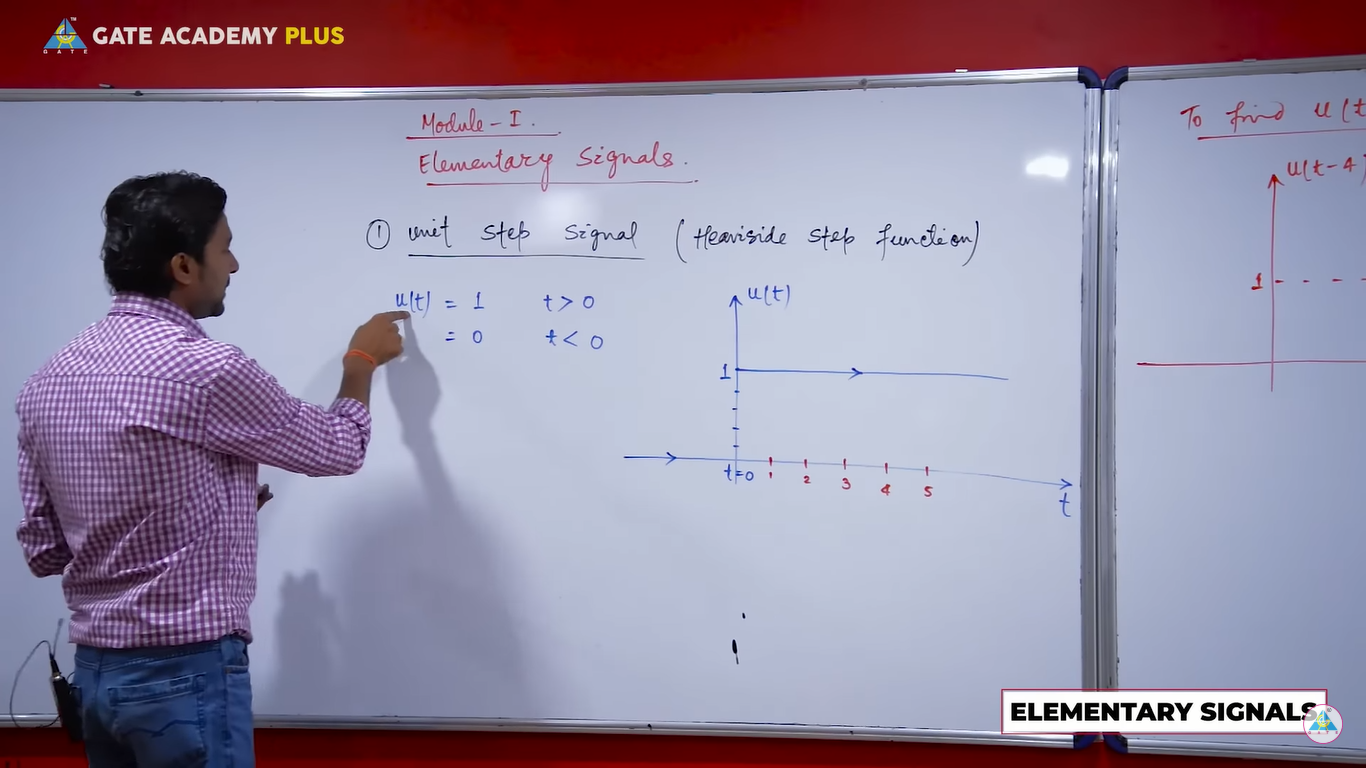 GATE ACADEMY PLUS
GATE
Module - I.
Elementary Signals.
① unit step signal (Heaviside step function)
u(t) = 1 t > 0
= 0 t < 0
u(t)
1
t=0 1 2 3 4 5
t
To find u(t
u(t-4)
1
ELEMENTARY SIGNALS
GATE